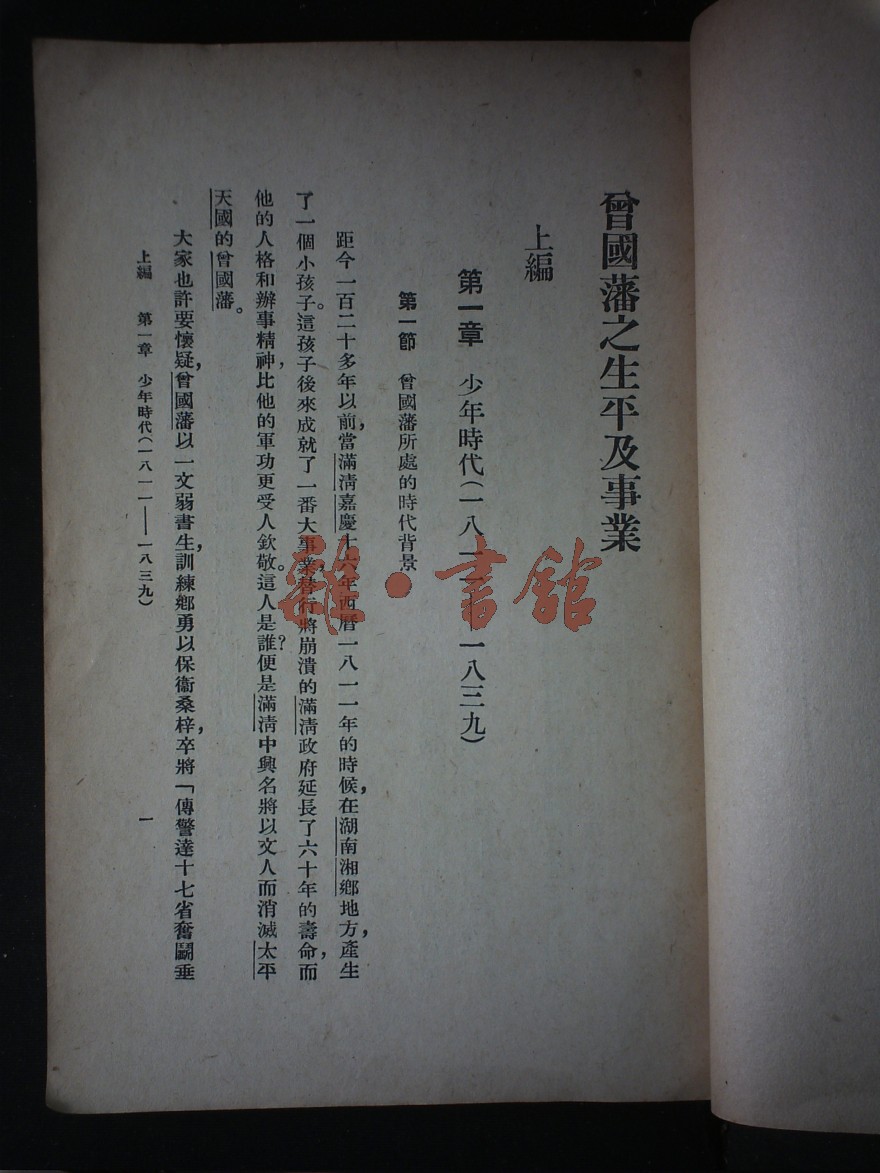 曾國藩之生平及事業
上編
第一章 少年時代(一八一一——一八三九)
第一節 曾國藩所處的時代背景
距今一百二十多年以前,當滿淸嘉慶十六年西曆一八一一年的時候,在湖南湘鄕地方,產生
了一個小孩子。這孩子後來成就了一番大事業,替行將崩潰的滿淸政府延長了六十年的壽命,而
他的人格和辦事精神,比他的軍功更受人欽敬。這人是誰?便是滿淸中興名將以文人而消滅太平
天國的曾國藩。
大家也許要懷疑,曾國藩以一文弱書生,訓練鄕勇以保衞桑梓,卒將「傳警達十七省奮鬭垂
上編 第一章 少年時代(一八一一——一八三九)
一
雜·書館